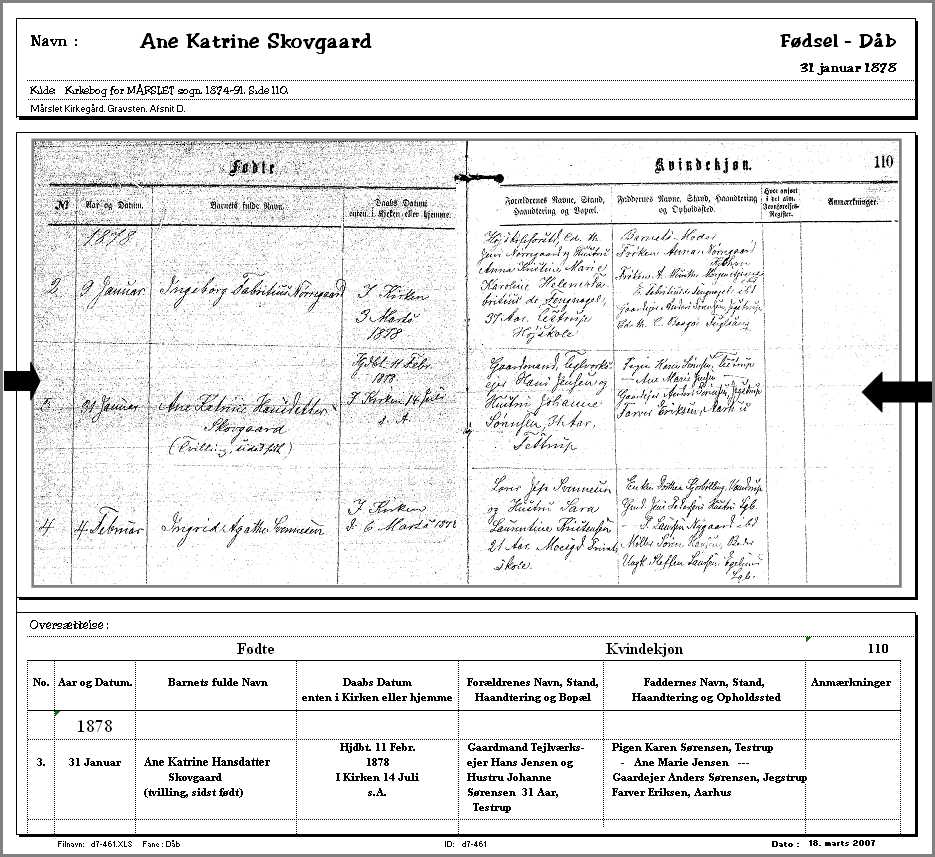 Navn : Ane Katrine Skovgaard Fødsel - Dåb
31 januar 1878
Kilde: Kirkebog for MÅRSLET sogn. 1874-91. Side 110.
Mårslet Kirkegård. Gravsten. Afsnit D.
Fødte Kvindekjøn. 110
№ Aar og Datum. Barnets fulde Navn. Daabs Datum enten i Kirken eller hjemme. Forældrenes Navne, Stand, Haandtering og Bopæl. Faddernes Navne, Stand, Haandtering og Opholdssted. Hvor anført i det alm. Jevnførelses-Register. Anmærkninger.
1878
2. 9 Januar Ingeborg Fabritius Nørregaard I Kirken
3 Marts
1878
Højskoleforst., Cd. th.
Jens Nørregaard og Hustru
Anna Kristine Marie
Karoline Helene Fa-
britius de Tengnagel,
37 Aar. Testrup
Højskole
Barnets Moder
Frøken Anna Nørregaard
Gaardejer Anders Sørensen, Jegstrup
3. 31 Januar Ane Katrine Hansdatter
Skovgaard
(Tvilling, sidst født)
Hjdbt. 11 Febr.
1878
I Kirken 14 Juli
s. A.
Gaardmand, Teglværks-
ejer Hans Jensen og
Hustru Johanne
Sørensen, 31 Aar.
Testrup
Pigen Karen Sørensen, Testrup
— Ane Marie Jensen
Gaardejer Anders Sørensen, Jegstrup
Farver Eriksen, Aarhus
4 4 Februar Ingrid Agathe Svenneum I Kirken
d. 6. Marts 1878
Lærer Jens Svenneum
og Hustru Sara
Laurentine Kristensen
21 Aar.
skole.
Oversættelse :
Fødte Kvindekjøn 110
No. Aar og Datum. Barnets fulde Navn Daabs Datum enten i Kirken eller hjemme Forældrenes Navn, Stand, Haandtering og Bopæl Faddernes Navn, Stand, Haandtering og Opholdssted Anmærkninger
1878
3. 31 Januar Ane Katrine Hansdatter
Skovgaard
(tvilling, sidst født)
Hjdbt. 11 Febr.
1878
I Kirken 14 Juli
s.A.
Gaardmand Tejlværks-
ejer Hans Jensen og
Hustru Johanne
Sørensen 31 Aar,
Testrup
Pigen Karen Sørensen, Testrup
- Ane Marie Jensen ---
Gaardejer Anders Sørensen, Jegstrup
Farver Eriksen, Aarhus
Filnavn: d7-461.XLS Fane: Dåb ID: d7-461 Dato : 18. marts 2007